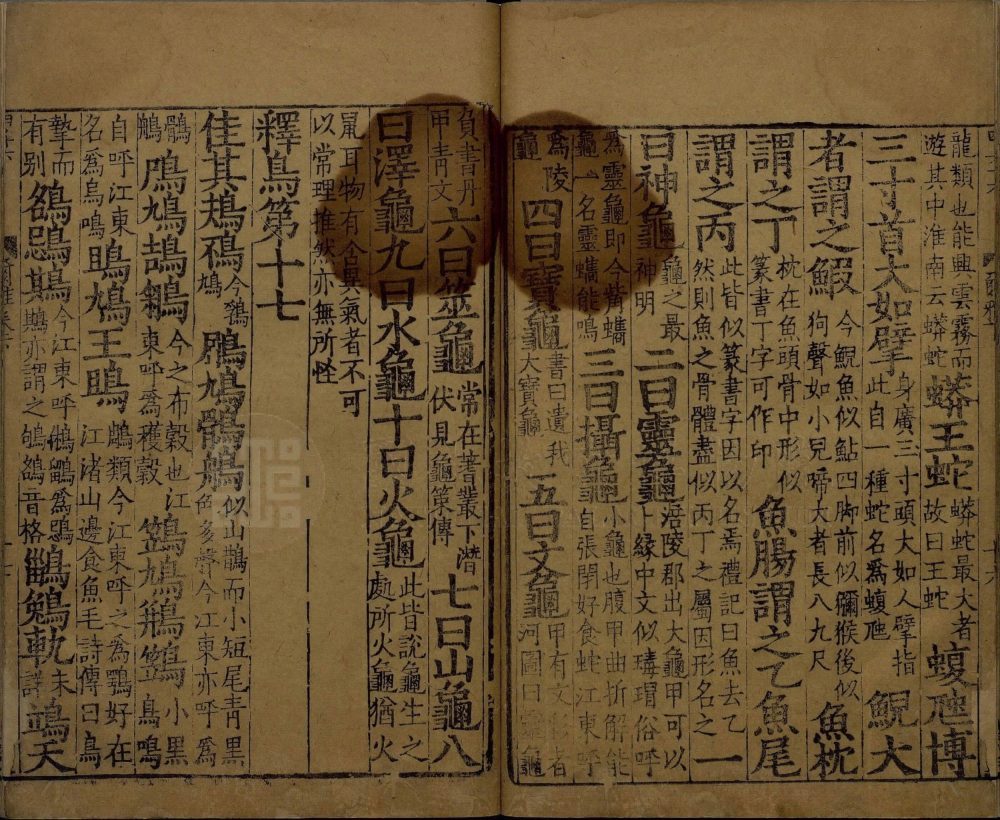 龍類也能興雲霧而遊其中淮南云蟒蛇蟒王蛇蟒蛇最大者故曰王蛇蝮虺博
三寸首大如擘身廣三寸頭大如人擘指此自一種蛇名爲蝮虺鯢大
者謂之鰕今鯢魚似鮎四脚前似獼猴後似狗聲如小兒啼大者長八九尺魚枕
謂之丁枕在魚頭骨中形似篆書丁字可作印魚腸謂之乙魚尾
謂之丙此皆似篆書字因以名焉禮記曰魚去乙然則魚之骨體盡似丙丁之屬因形名之一
曰神龜龜之最神明二曰靈龜涪陵郡出大龜甲可以卜緣中文似瑇瑁俗呼
爲靈龜即今觜蠵龜一名靈蠵能鳴三曰攝龜小龜也腹甲曲折解能自張閉好食蛇江東呼
爲陵龜四曰寶龜書曰遺我大寶龜五曰文龜甲有文彩者河圖曰靈龜
負書丹甲青文六曰筮龜常在蓍叢下潛伏見龜策傳七曰山龜八
曰澤龜九曰水龜十曰火龜此皆說龜生之處所火龜猶火
鼠耳物有含異氣者不可以常理推然亦無所怪
釋鳥第十七
隹其鳺鴀今䳕鳩鶌鳩鶻鵃似山鵲而小短尾青黑色多聲今江東亦呼爲
鶻鵃鳲鳩鴶鵴今之布穀也江東呼爲穫穀鷑鳩鵧鷑小黑鳥鳴
自呼江東名爲烏鳴鴡鳩王鴡鵰類今江東呼之爲鶚好在江渚山邊食魚毛詩傳曰鳥
摯而有别鵅鵋䳢今江東呼鵂鶹爲鵋䳢亦謂之鴝鵅音格鶅鵵軌未詳鴗天